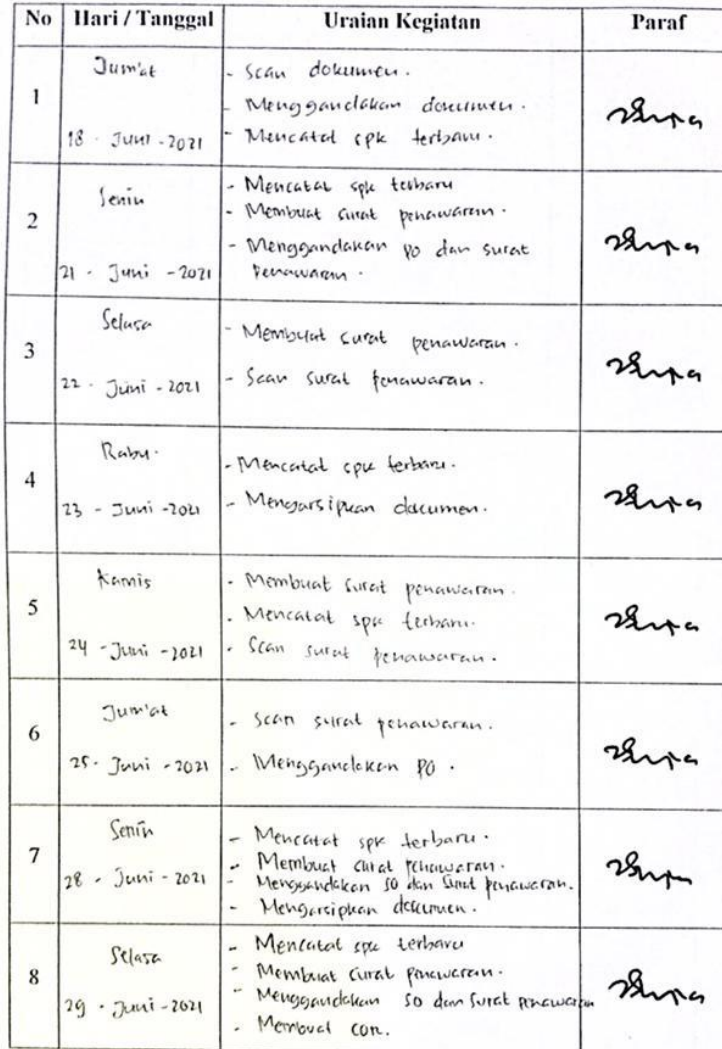 No Hari / Tanggal Uraian Kegiatan Paraf
1 Jum'at
18 - Juni - 2021
- Scan dokumen.
- Menggandakan dokumen.
- Mencatat spk terbaru.
2 Senin
21 - Juni - 2021
- Mencatat spk terbaru
- Membuat surat penawaran.
- Menggandakan PO dan surat
penawaran.
3 Selasa
22 - Juni - 2021
- Membuat surat penawaran.
- Scan surat penawaran.
4 Rabu.
23 - Juni - 2021
- Mencatat spk terbaru.
- Mengarsipkan dokumen.
5 Kamis
24 - Juni - 2021
- Membuat surat penawaran.
- Mencatat spk terbaru.
- Scan surat penawaran.
6 Jum'at
25 - Juni - 2021
- Scan surat penawaran.
- Menggandakan PO.
7 Senin
28 - Juni - 2021
- Mencatat spk terbaru.
- Membuat surat penawaran.
- Menggandakan SO dan surat penawaran.
- Mengarsipkan dokumen.
8 Selasa
29 - Juni - 2021
- Mencatat spk terbaru
- Membuat surat penawaran.
- Menggandakan SO dan surat penawaran
- Membuat